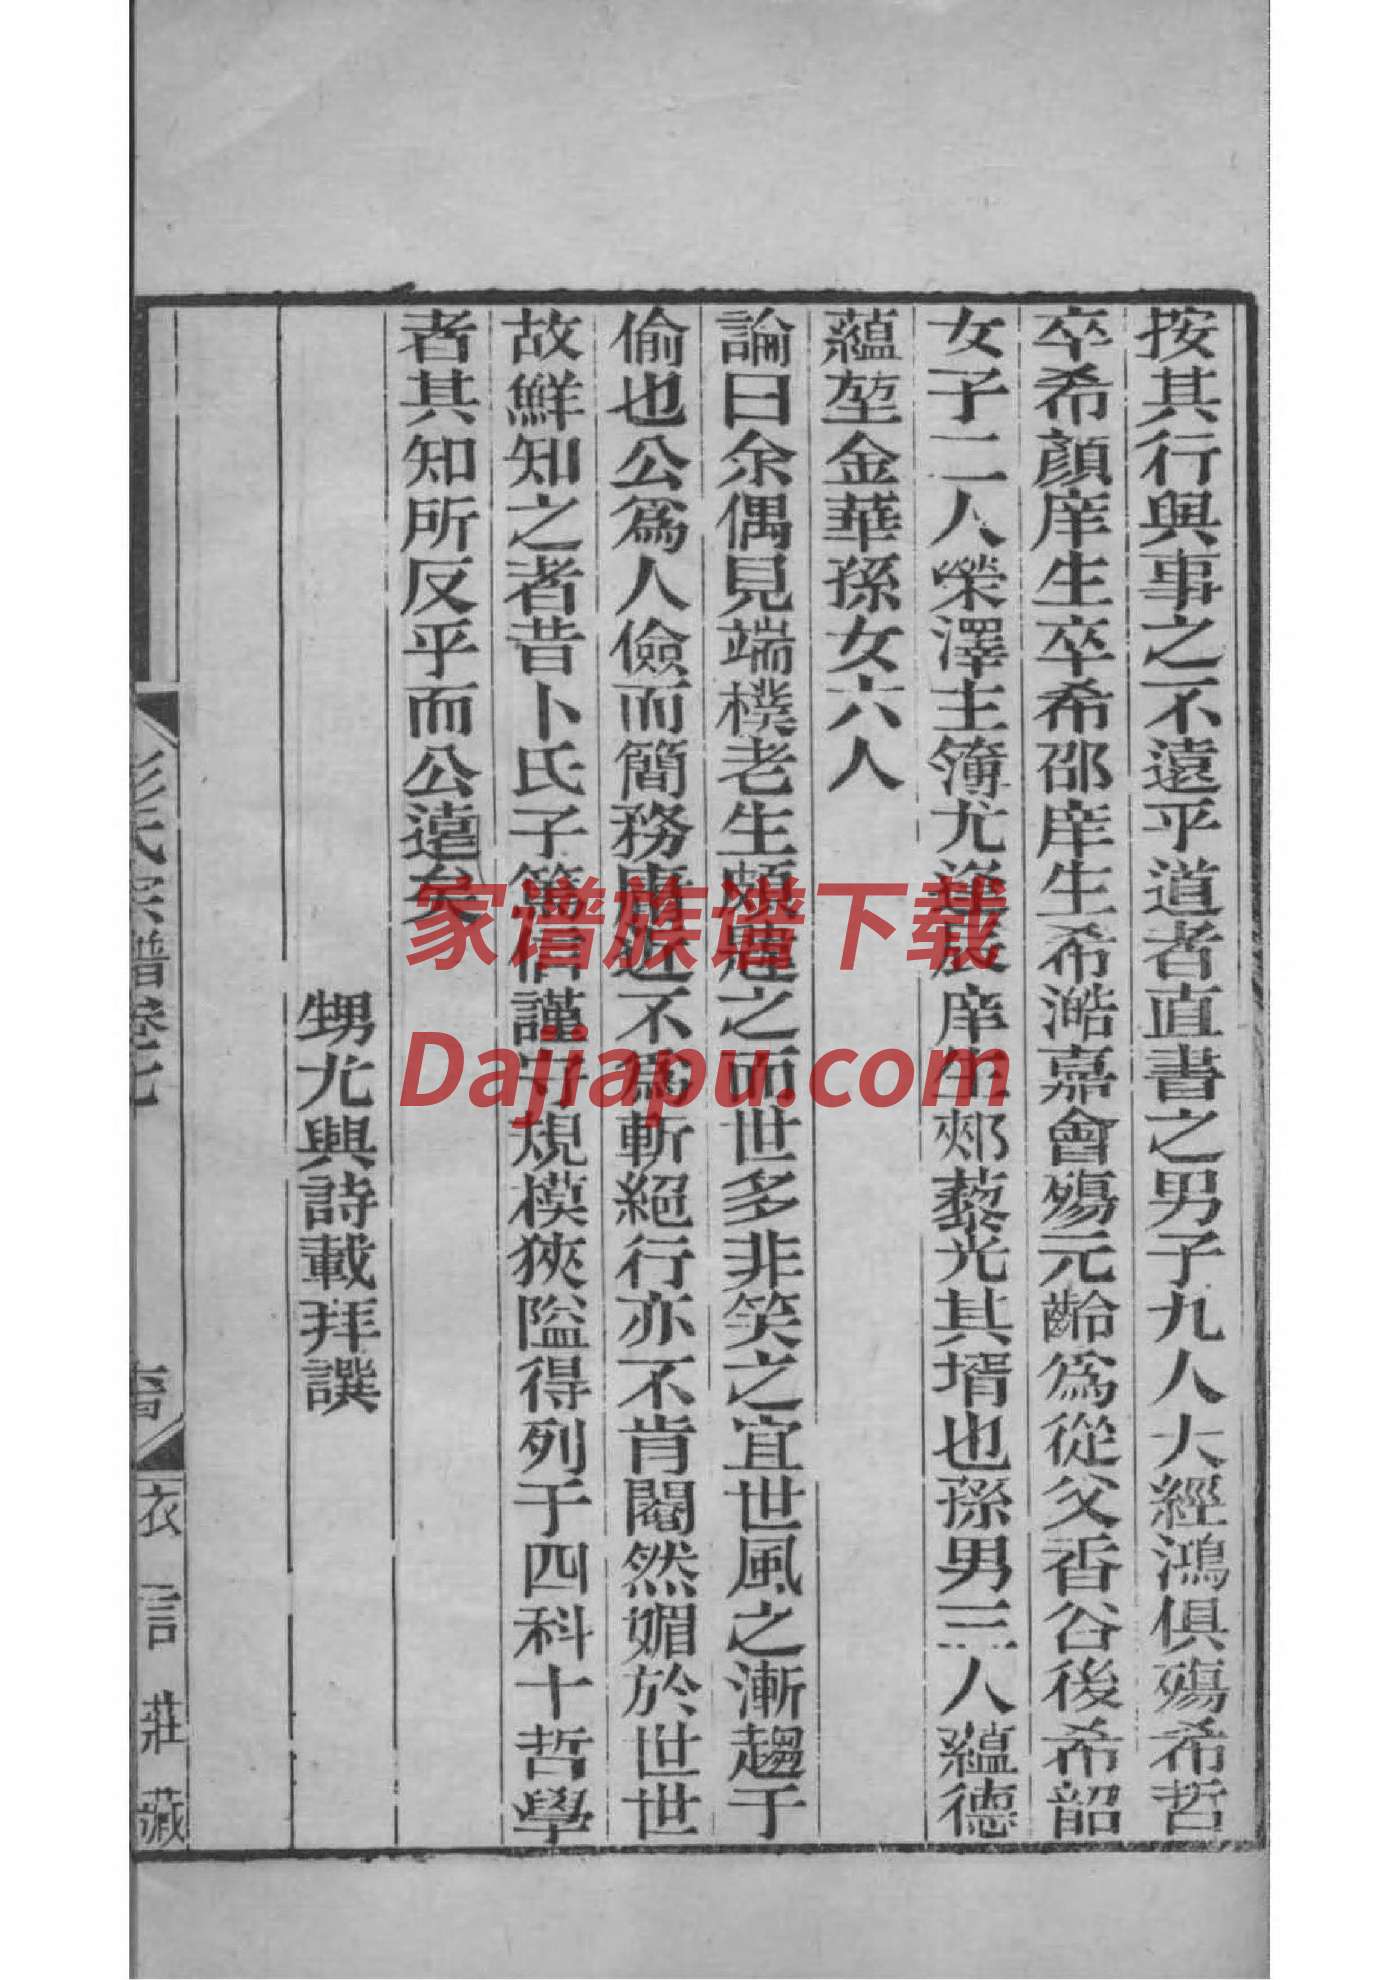 按其行與事之不遠乎道者直書之男子九人大經鴻俱殤希哲
卒希顏庠生卒希邵庠生希澔嘉會殤元齡為從父香谷後希韶
女子二人榮澤主簿尤 庠生郟藜光其壻也孫男三人蘊德
蘊堃金華孫女六人
論曰余偶見端樸老生頗 之而世多非笑之宜世風之漸趨于
偷也公為人儉而簡務 近不為斬絕行亦不肯閹然媚於世世
故鮮知之者昔卜氏子篤信謹守規模狹隘得列于四科十哲學
者其知所反乎而公遠矣
甥尤興詩載拜譔
彭氏宗譜卷七
衣言莊藏
家谱族谱下载
Dajiapu.com